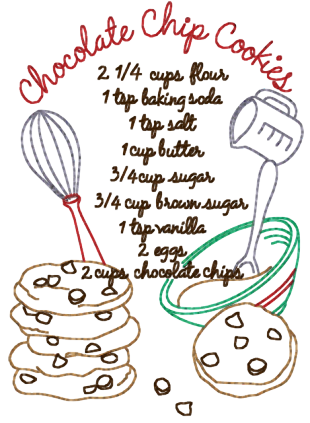 Chocolate Chip Cookies
2 1/4 cups flour
1 tsp baking soda
1 tsp salt
1 cup butter
3/4 cup sugar
3/4 cup brown sugar
1 tsp vanilla
2 eggs
2 cups chocolate chips